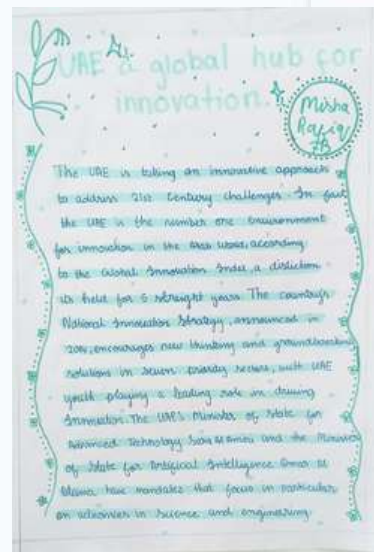 UAE a global hub for
innovation.
Misha
Rafiq
7B
The UAE is taking an innovative approach
to address 21st Century challenges. In fact
the UAE is the number one environment
for innovation in the Arab World, according
to the Global Innovation Index, a distiction
its held for 5 streight years The country's
National Innovation Strategy, announced in
2014, encourages new thinking and groundbreaking
solutions in seven priority sectors, with UAE
youth playing a leading role in driving
Innovation. The UAE's Minister of State for
Advanced Technology Sara Al Amiri and the Minister
of State for Artificial Intelligence Omar Al
Olama have mandates that focus in particular
on advances in science and engineering